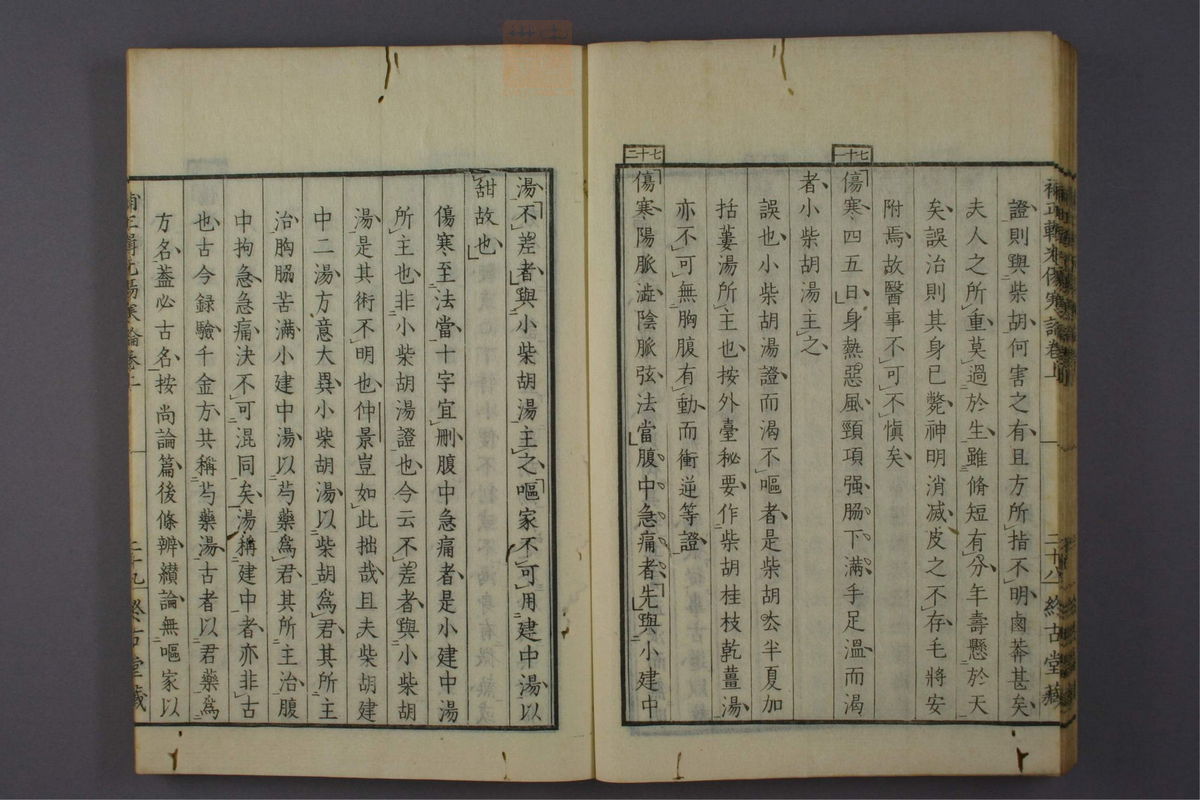 證則與柴胡何害之有且方所指不明鹵莽甚矣
夫人之所重莫過於生雖脩短有分年壽懸於天
矣誤治則其身已斃神明消滅皮之不存毛將安
附焉故醫事不可不愼矣
七十一
傷寒四五日身熱惡風頸項强脇下滿手足溫而渴
者小柴胡湯主之
誤也小柴胡湯證而渴不嘔者是柴胡去半夏加
括蔞湯所主也按外臺秘要作柴胡桂枝乾薑湯
亦不可無胸腹有動而衝逆等證
七十二
傷寒陽脈澁陰脈弦法當腹中急痛者先與小建中
湯不差者與小柴胡湯主之嘔家不可用建中湯以
甜故也
傷寒至法當十字宜刪腹中急痛者是小建中湯
所主也非小柴胡湯證也今云不差者與小柴胡
湯是其術不明也仲景豈如此拙哉且夫柴胡建
中二湯方意大異小柴胡湯以柴胡爲君其所主
治胸脇苦滿小建中湯以芍藥爲君其所主治腹
中拘急急痛決不可混同矣湯稱建中者亦非古
也古今録驗千金方共稱芍藥湯古者以君藥爲
方名葢必古名按尚論篇後條辨續論無嘔家以
終古堂藏